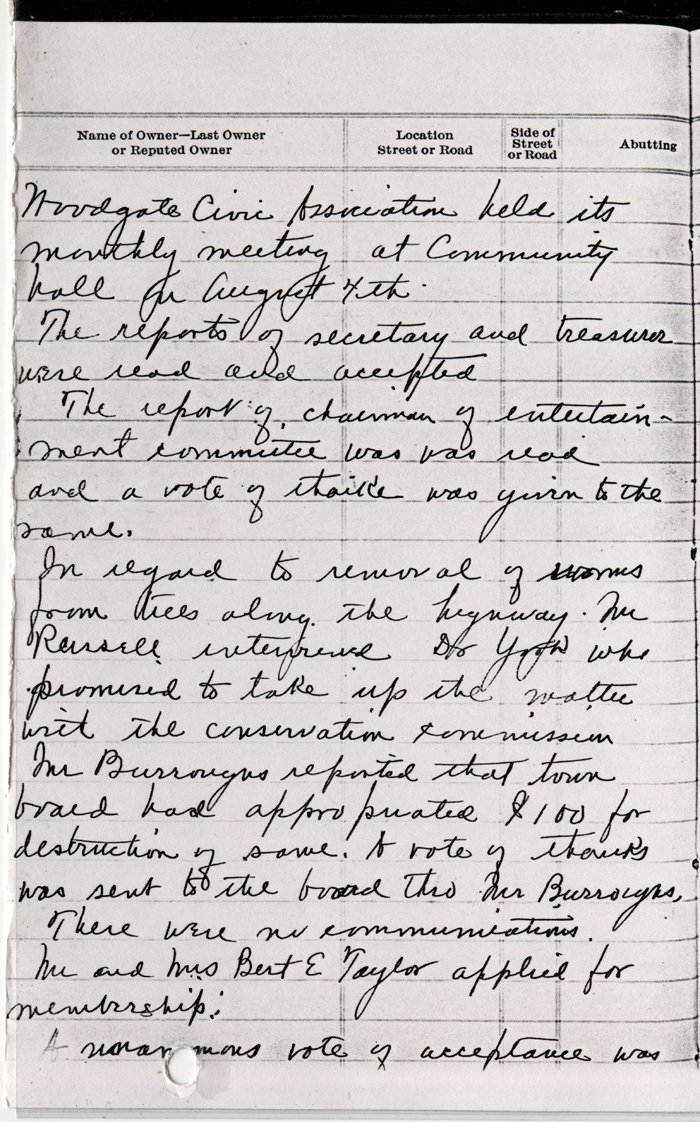 Name of Owner—Last Owner
or Reputed Owner
Location
Street or Road
Side of
Street
or Road
Abutting
Woodgate Civic Association held its
monthly meeting at Community
hall on August 4th.
The reports of secretary and treasurer
were read and accepted
The report of chairman of entertain-
ment committee was was read
and a vote of thanks was given to the
same.
In regard to removal of worms
from trees along the highway. Mr
Russell interviewed Dr York who
promised to take up the matter
with the conservation commission
Mr Burroughs reported that town
board had appropriated $100 for
destruction of same. A vote of thanks
was sent to the board thro Mr Burroughs.
There were no communications.
Mr and Mrs Bert E Taylor applied for
membership.
A mous vote of acceptance was